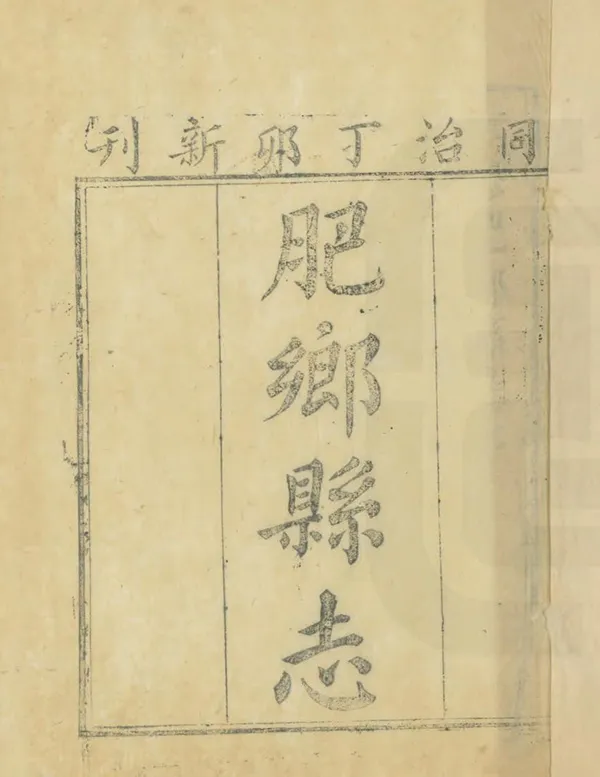 同治丁卯新刊
肥鄉縣志